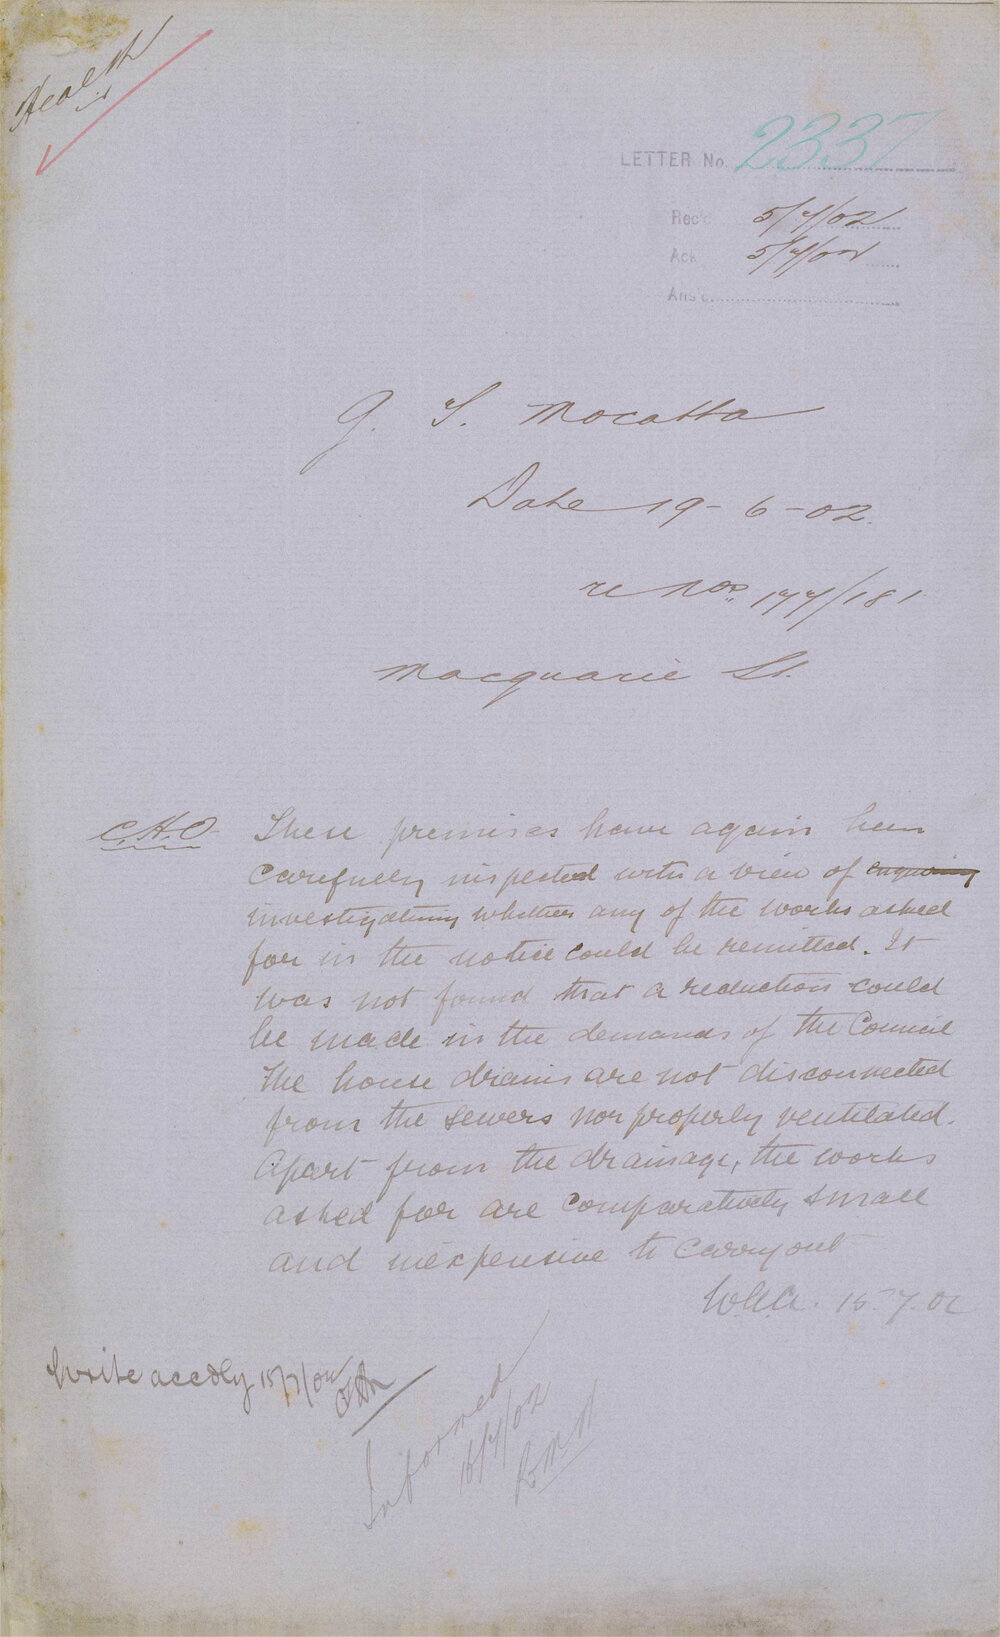 Health
LETTER No. 2337
Rec'd 5/7/02
Ack 5/7/02
Ans'd
G. S. Mocatta
Date 19-6-02.
re Nos. 177/181
Macquarie St.
C.H.O. These premises have again been
carefully inspected with a view of enquiring
investigating whether any of the works asked
for in the notice could be remitted. It
was not found that a reduction could
be made in the demands of the Council
The house drains are not disconnected
from the sewers nor properly ventilated.
Apart from the drainage, the works
asked for are comparatively small
and inexpensive to carry out
15.7.02
Write accdly 15/7/02
Informed
16/7/02